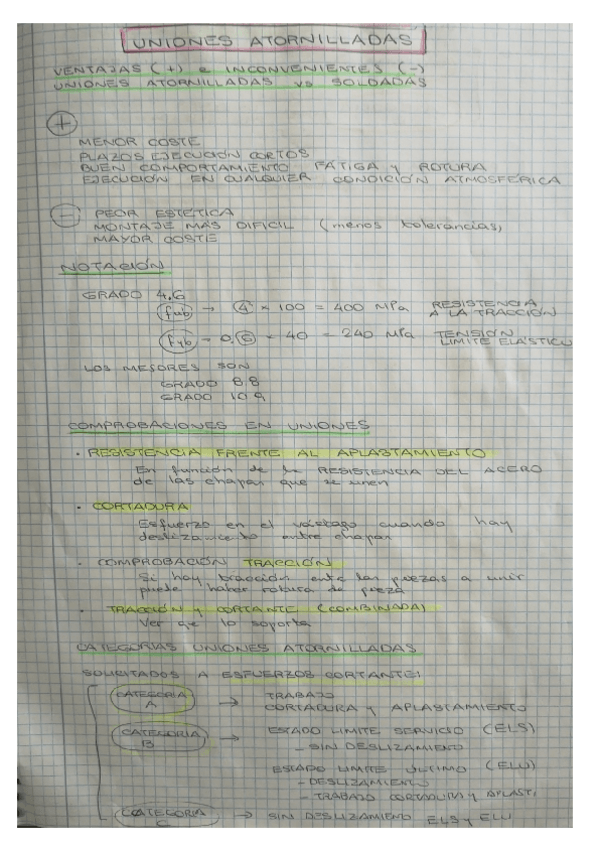 UNIONES ATORNILLADAS
VENTAJAS (+) e INCONVENIENTES (-)
UNIONES ATORNILLADAS vs SOLDADAS
+
MENOR COSTE
PLAZOS EJECUCIÓN CORTOS
BUEN COMPORTAMIENTO FATIGA y ROTURA
EJECUCIÓN EN CUALQUIER CONDICIÓN ATMOSFÉRICA
- PEOR ESTÉTICA
MONTAJE MAS DIFICIL (menos tolerancias)
MAYOR COSTE
NOTACIÓN
GRADO 4.6
fub → 4 × 100 = 400 MPa RESISTENCIA A LA TRACCIÓN
fyb → 0.6 × 40 = 240 MPa TENSIÓN LIMITE ELASTICO
LOS MEJORES SON
GRADO 8.8
GRADO 10.9
COMPROBACIONES EN UNIONES
· RESISTENCIA FRENTE AL APLASTAMIENTO
En función de la RESISTENCIA DEL ACERO
de las chapas que se unen
· CORTADURA
Esfuerzo en el vástago cuando hay
deslizamiento entre chapas
· COMPROBACIÓN TRACCIÓN
Si hay tracción entre las piezas a unir
puede haber rotura de pieza
· TRACCIÓN y CORTANTE (COMBINADA)
Ver que lo soporta
CATEGORIAS UNIONES ATORNILLADAS
SOLICITADOS A ESFUERZOS CORTANTE:
CATEGORIA A → TRABAJO
CORTADURA y APLASTAMIENTO
CATEGORIA B → ESTADO LIMITE SERVICIO (ELS)
- SIN DESLIZAMIENTO
ESTADO LIMITE ÚLTIMO (ELU)
- DESLIZAMIENTO
- TRABAJO CORTADURA y APLAST.
CATEGORIA C → SIN DESLIZAMIENTO ELS y ELU